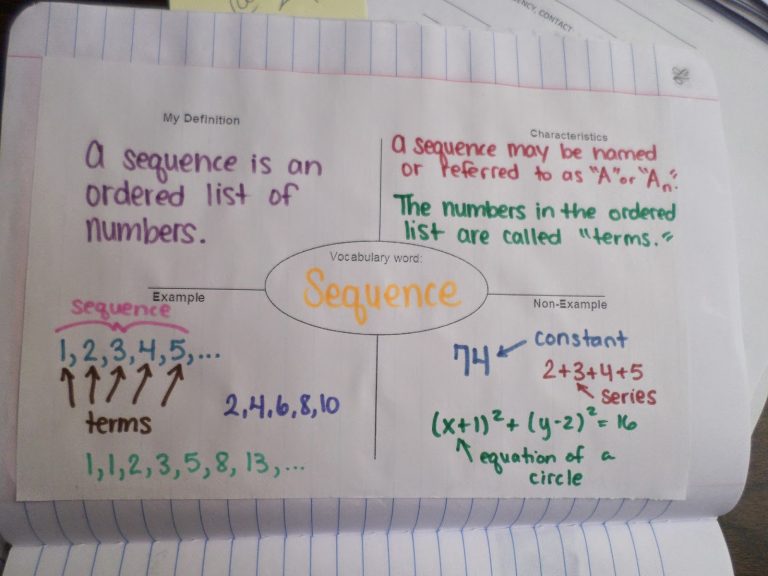 ENCY, CONTACT
My Definition
A sequence is an
ordered list of
numbers.
Characteristics
A sequence may be named
or referred to as "A" or "An".
The numbers in the ordered
list are called "terms."
Vocabulary word:
Sequence
Example
sequence
1, 2, 3, 4, 5, ...
terms
2, 4, 6, 8, 10
1, 1, 2, 3, 5, 8, 13, ...
Non-Example
74
constant
2+3+4+5
series
(x+1)² + (y-2)² = 16
equation of a
circle